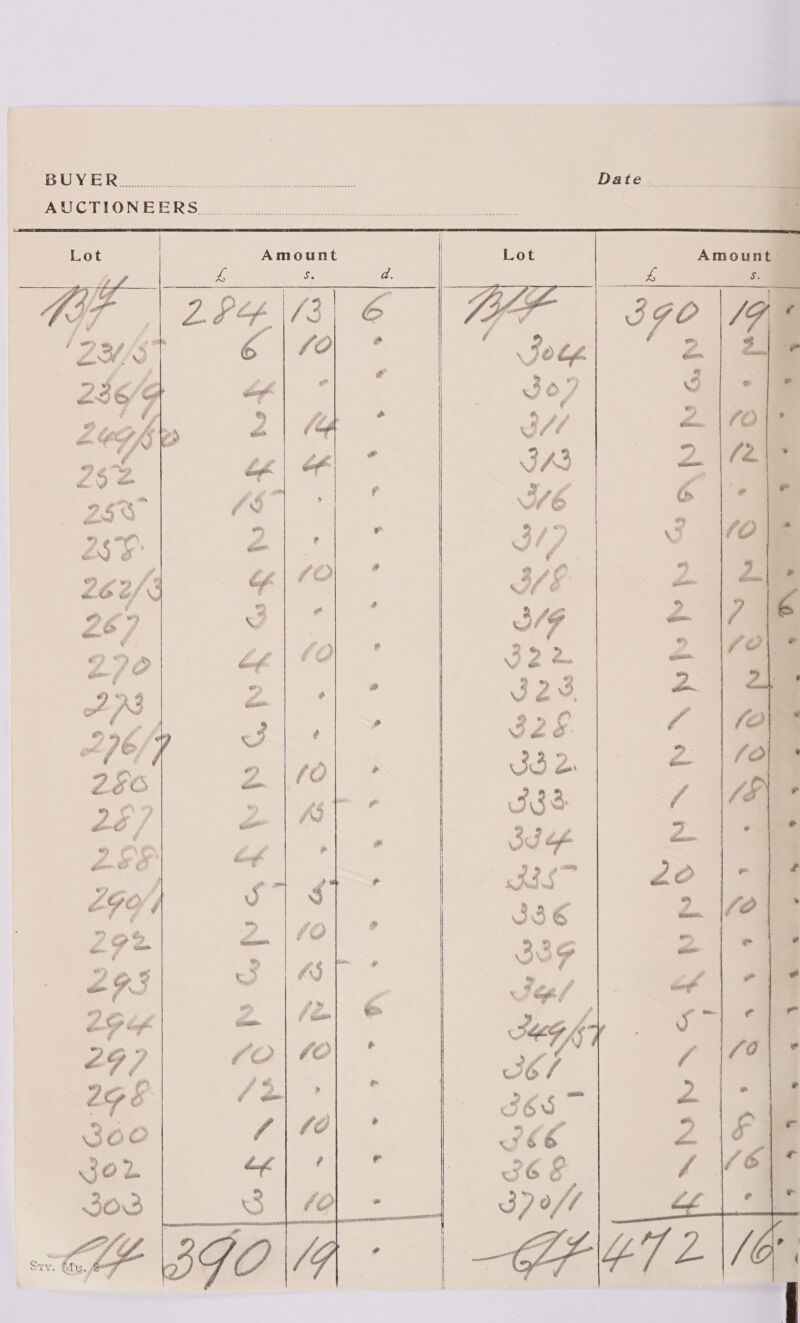 BUYER Date
AUCTIONEERS
Lot Amount Lot Amount
£ s. d. £ s.
B/F 284 13 6 B/F 390 19 -
234/5 6 10 - 304 2 2 -
236/9 4 - - 307 3 - -
249/50 2 14 - 311 2 10 -
252 4 4 - 313 2 12 -
255 15 - - 316 6 - -
258 2 - - 317 3 10 -
262/3 4 10 - 318 2 2 -
267 3 - - 319 2 7 6
270 4 10 - 322 2 10 -
273 2 - - 323 2 2 -
276/7 3 - - 328 1 10 -
280 2 10 - 332 2 10 -
287 2 15 - 333 1 18 -
288 4 - - 334 2 - -
290/1 5 5 - 335 20 - -
292 2 10 - 336 2 10 -
293 3 15 - 339 2 - -
294 2 12 6 341 4 - -
297 10 10 - 349/57 5 - -
298 12 - - 361 1 10 -
300 1 10 - 365 2 - -
302 4 - - 366 2 8 -
303 3 10 - 368 1 16 -
370/1 4 - -
C/F 390 19 - C/F 472 16
Sty. Mg.